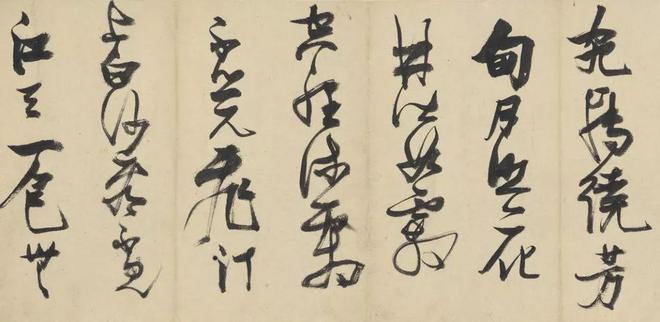 宛轉繞芳
甸月照花
林皆似霰
空裡流霜
不覺飛汀
上白沙看不見
江天一色無